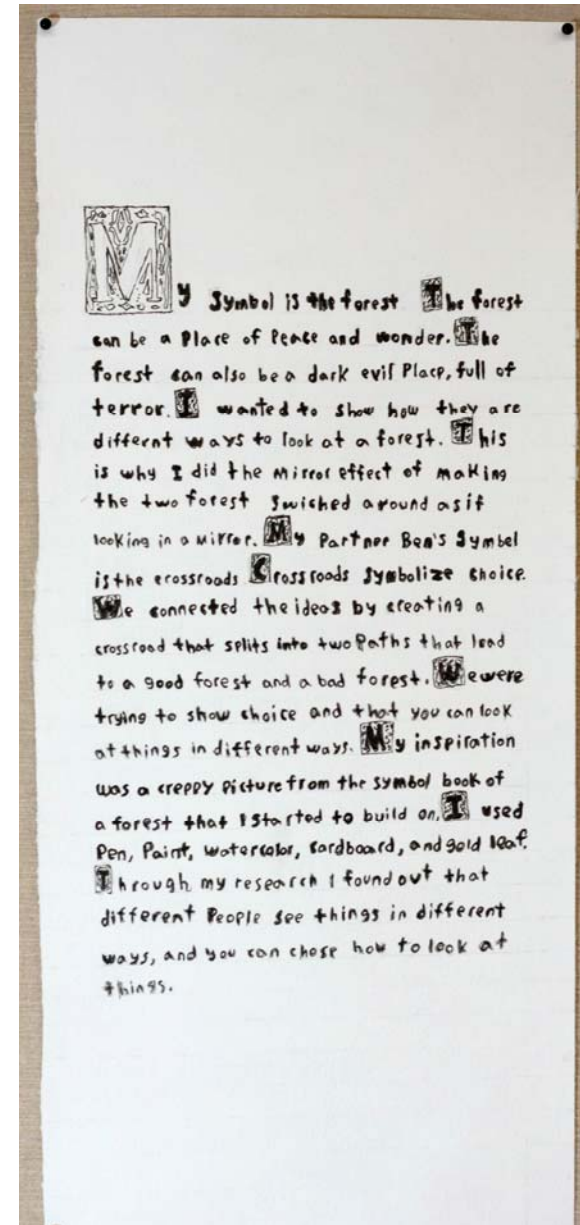 My Symbol is the forest The forest
can be a Place of Peace and wonder. The
forest can also be a dark evil Place, full of
terror. I wanted to show how they are
differnt ways to look at a forest. This
is why I did the Mirror effect of making
the two forest Swiched around as if
looking in a Mirror. My Partner Ben's Symbel
is the crossroads Crossroads Symbolize choice.
We connected the ideas by creating a
crossroad that splits into two Paths that lead
to a good forest and a bad forest. We were
trying to show choice and that you can look
at things in different ways. My inspiration
was a creppy Picture from the symbol book of
a forest that I started to build on. I used
Pen, Paint, watercolor, Cardboard, and gold leaf.
Through my research I found out that
different People see things in different
ways, and you can chose how to look at
things.